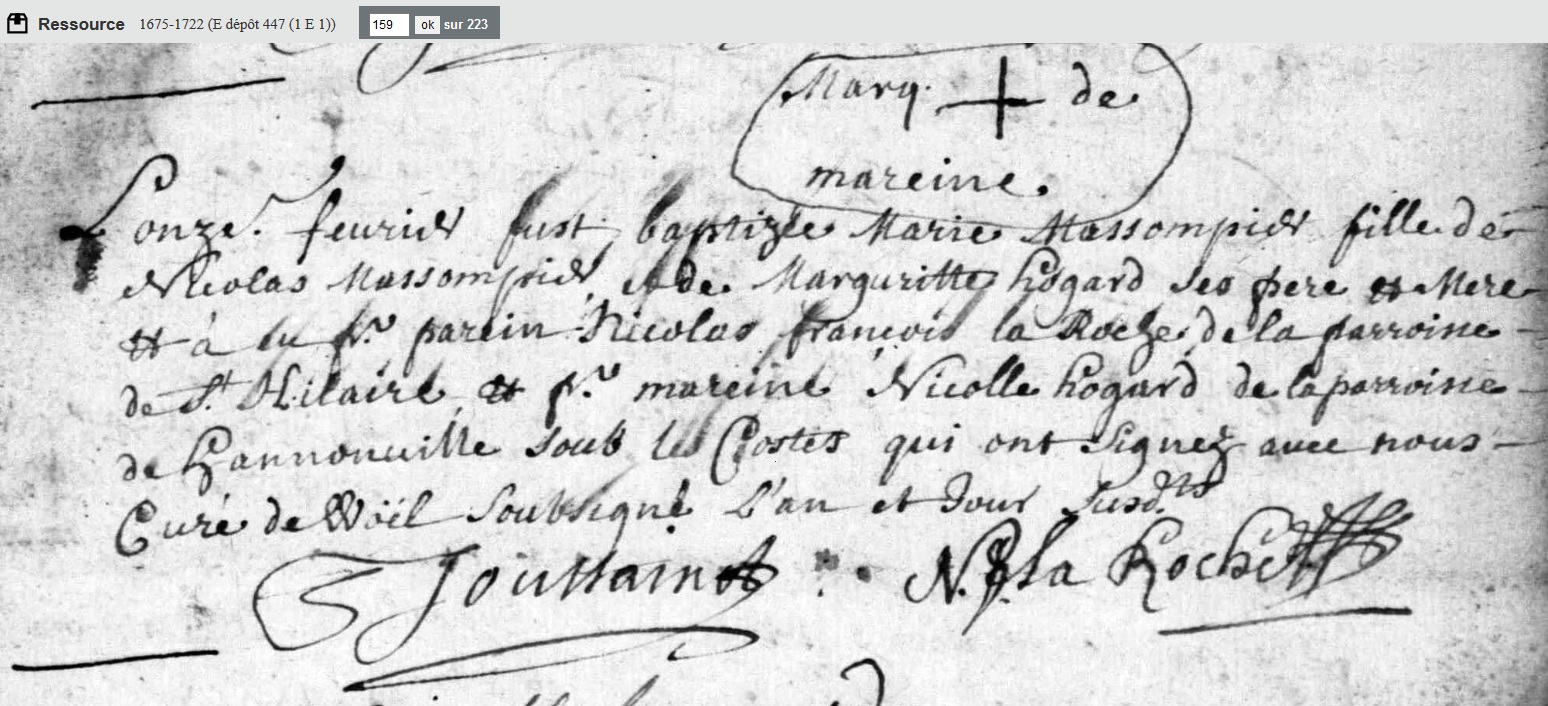 Ressource 1675-1722 (E dépôt 447 (1 E 1)) 159 ok sur 223
Marq. + de
mareine.
L'onze. feurier fust baptizée Marie Massompier fille de
Nicolas Massompier et de Marguritte hogard ses pere et Mere
et à eu pr. parein Nicolas françois la Roche de la parroisse
de St. Hilaire et pr. mareine Nicolle hogard de la parroisse
de hannonuille soub les Costes qui ont signez auec nous
Curé de Woël soubsigné L'an et Jour susdts
J Toussainct N. f. la Roche